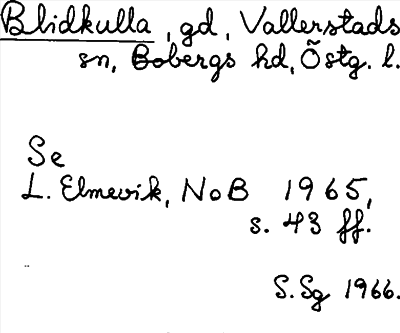 Blidkulla, gd, Vallerstads
sn, Bobergs hd, Östg. l.
Se
L. Elmevik, NoB 1965,
s. 43 ff.
S. Sg 1966.